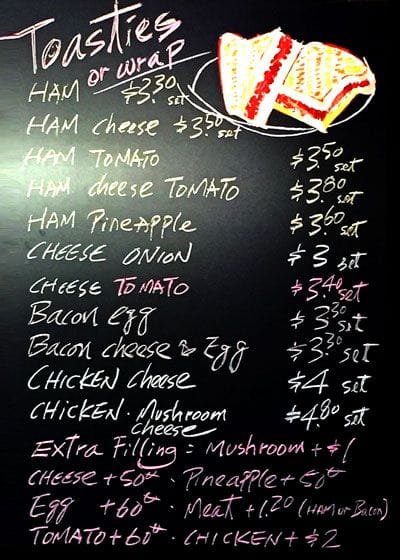 Toasties
or wrap
HAM $3.30 set
HAM cheese $3.50 set
HAM TOMATO $3.50 set
HAM cheese TOMATO $3.80 set
HAM Pineapple $3.60 set
CHEESE ONION $3 set
CHEESE TOMATO $3.40 set
Bacon egg $3.30 set
Bacon cheese & Egg $3.30 set
CHICKEN Cheese $4 set
CHICKEN · Mushroom cheese $4.80 set
Extra Filling = Mushroom + $1
CHEESE + 50¢ · Pineapple + 50¢
Egg + 60¢ · Meat + 1.20 (HAM or Bacon)
TOMATO + 60¢ · CHICKEN + $2